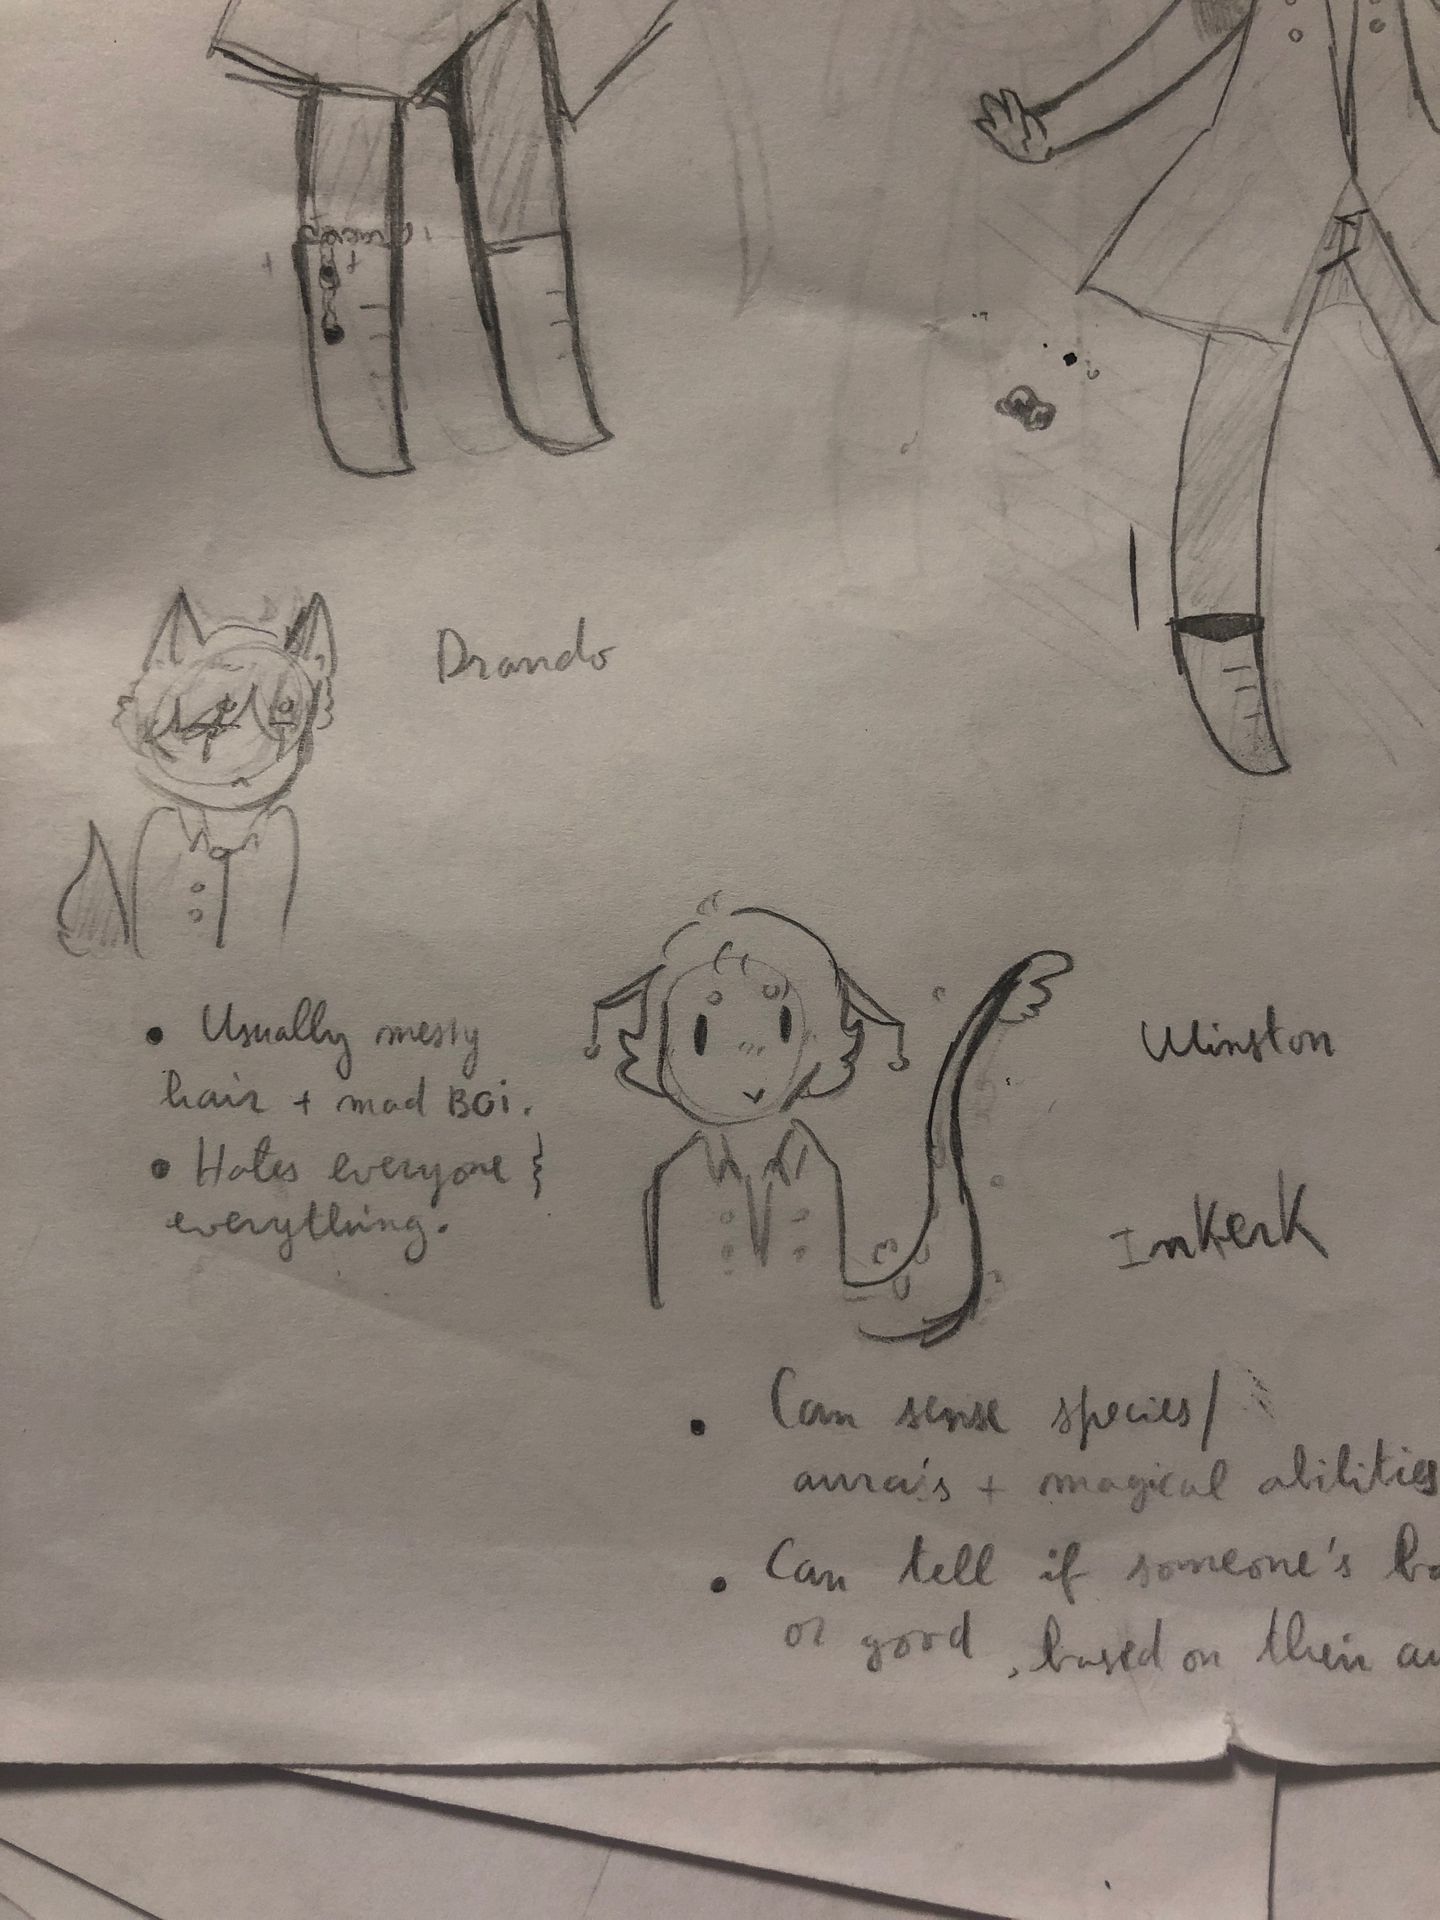 Drando
• Usually messy
hair + mad BOi.
• Hates everyone &
everything.
Winston
InKerK
• Can sense species/
aura's + magical abilities
• Can tell if someone's
or good, based on their